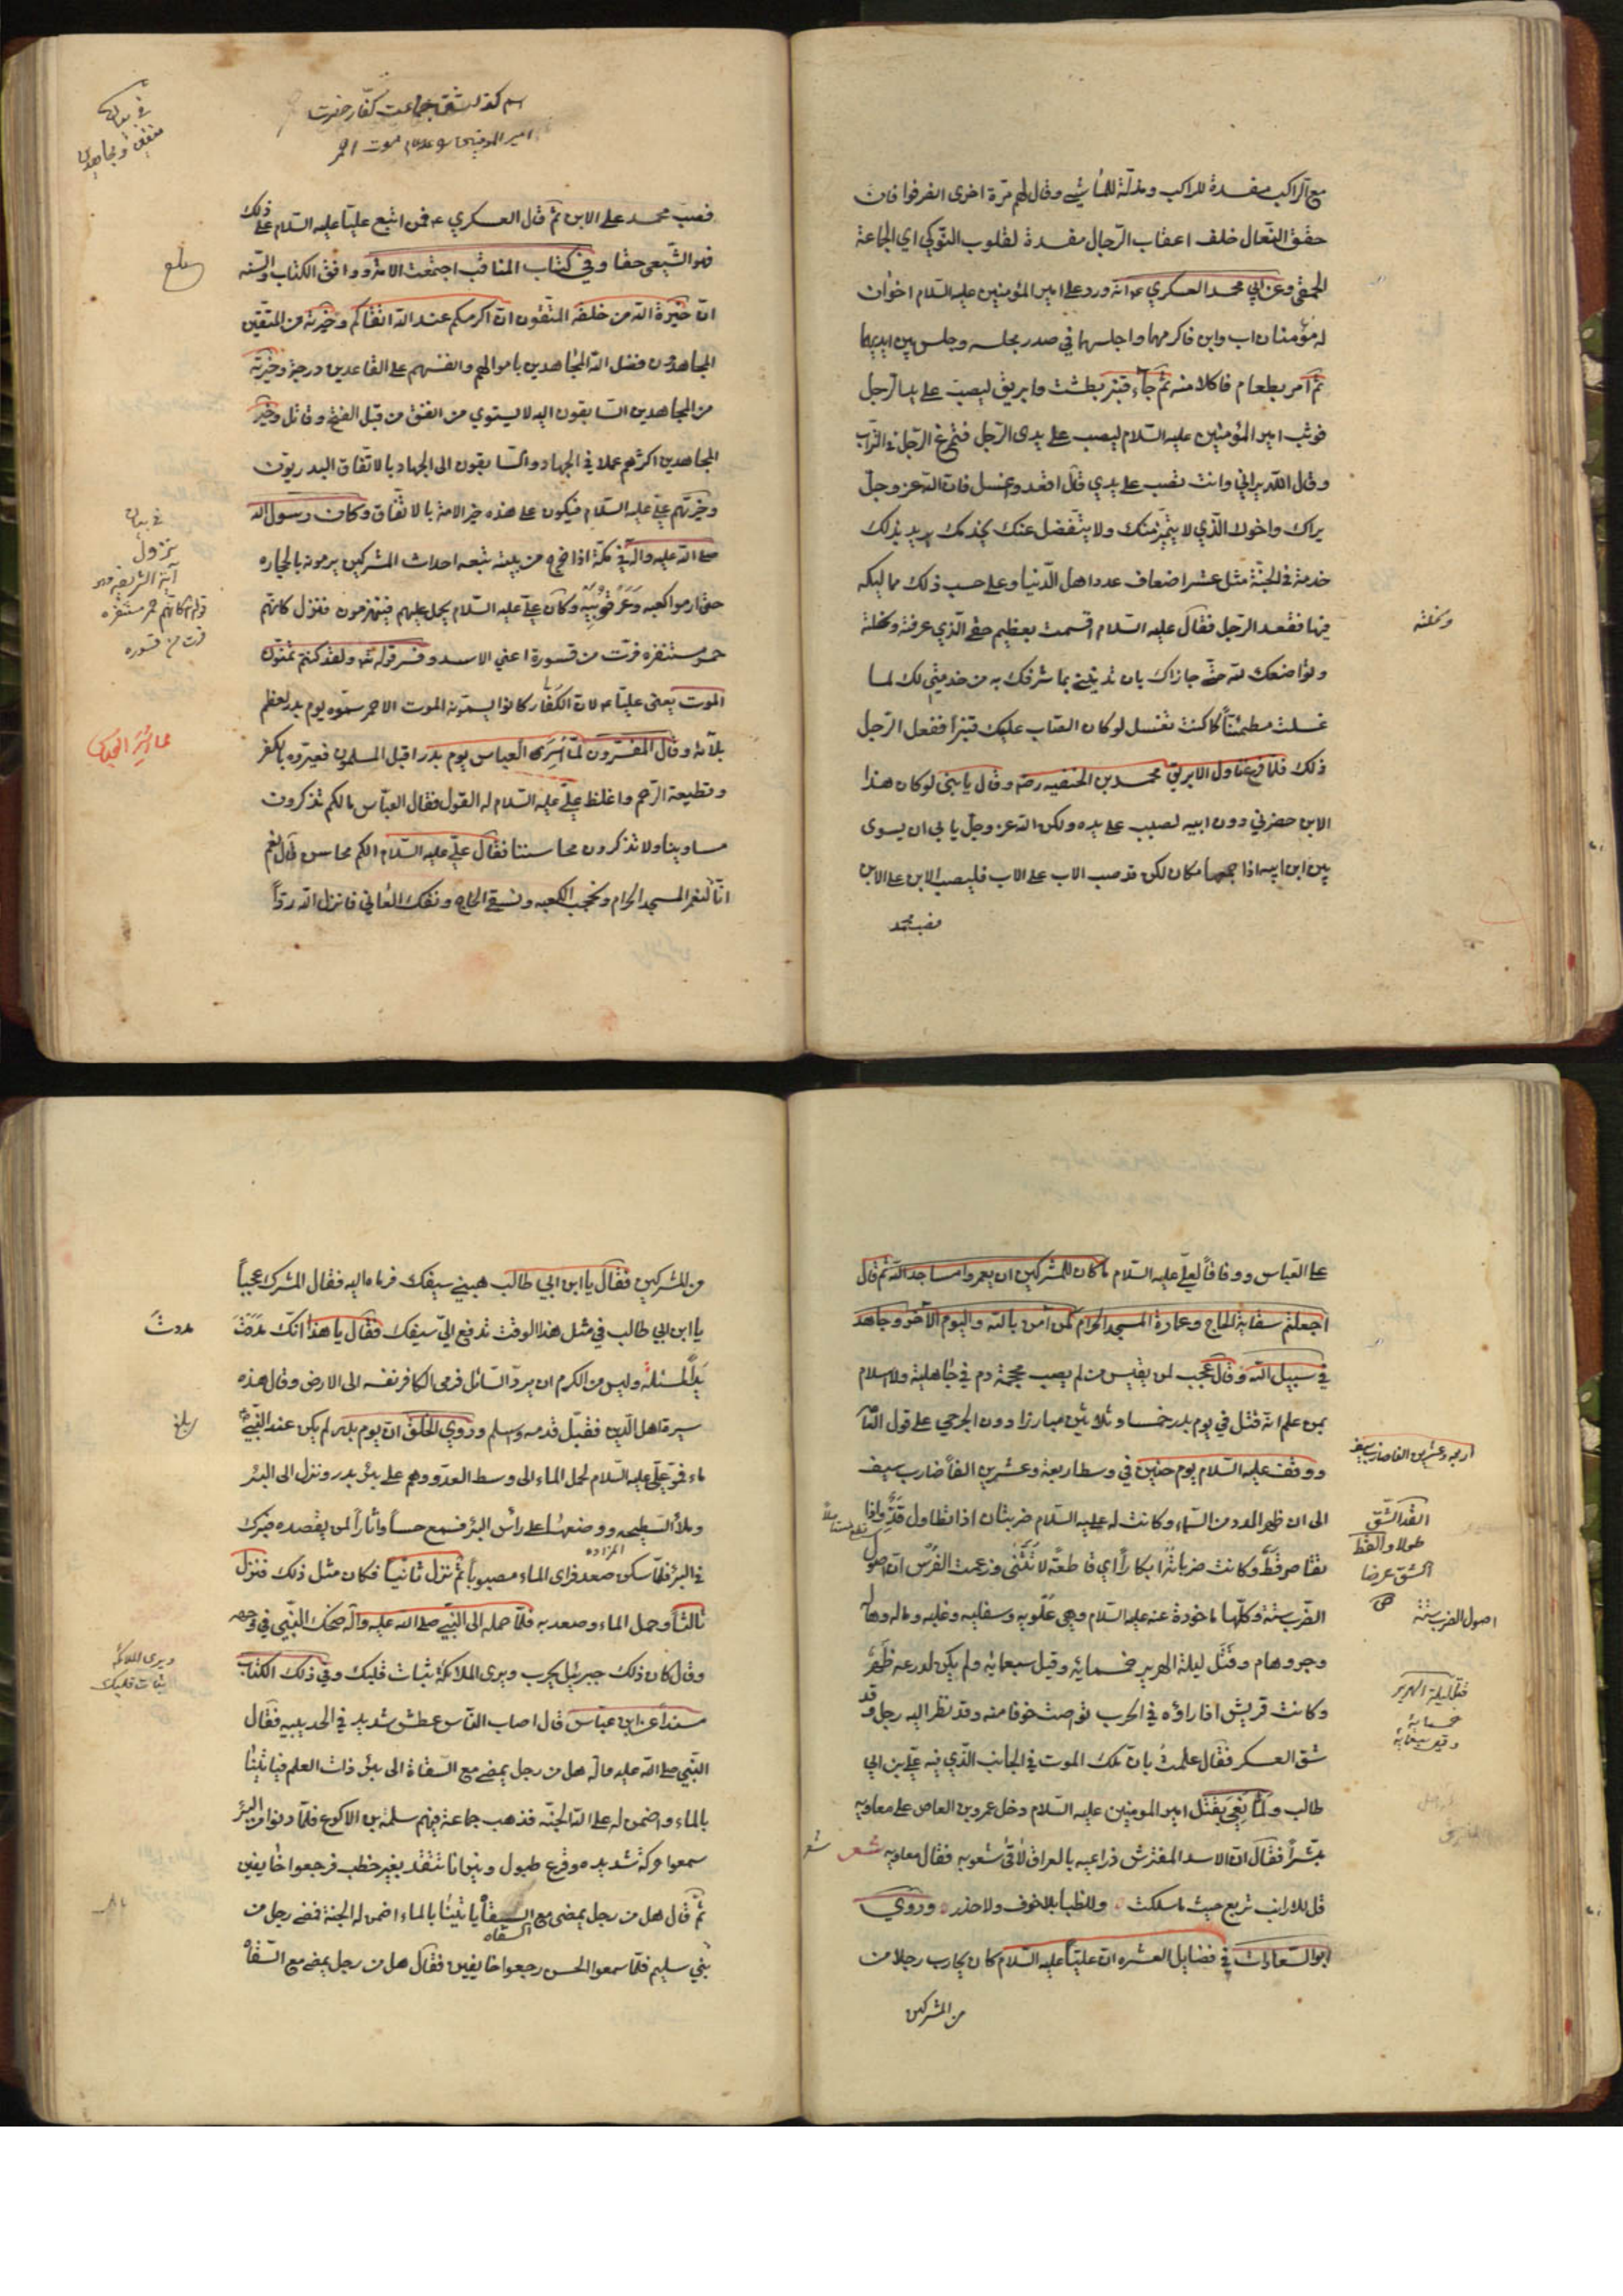 مع الراكب مفسدة للراكب ومذلّة للماشي وقال لهم مرّة اخرى انصرفوا فان
خفق النّعال خلف اعقاب الرّجال مفسدة لقلوب النّوكى اي الجماعة
الحمقى وعن ابي محمد العسكري ع انّه ورد على امير المؤمنين عليه السّلام اخوان
له مؤمنان اب وابن فاكرمهما واجلسهما في صدر مجلسه وجلس بين ايديهما
ثمّ آمر بطعام فاكلا منه ثمّ جآء قنبر بطشت وابريق ليصبّ على يد الرّجل
فوثب امير المؤمنين عليه السّلام ليصب على يدى الرّجل فتمرغ الرّجل في التّراب
وقال اللّه يراني وانت تصب على يدي قال اقعد واغسل فانّ اللّه عزّ وجلّ
يراك واخوك الّذي لا يتميّز منك ولا يتفضل عنك يخدمك يريد بذلك
خدمة في الجنّة مثل عشر اضعاف عدد اهل الدّنيا وعلى حسب ذلك مماليكه
فيها فقعد الرّجل فقال عليه السّلام اقسمت بعظيم حقّي الّذي عرفته ونحلته
ونحلته
وتواضعك للّه حتّى جازاك بان تدنيني بما شرفك به من خدمتي لك لما
غسلت مطمئنّاً كما كنت تغسل لو كان الصّاب عليك قنبراً ففعل الرّجل
ذلك فلمّا فرغ ناول الابريق محمد بن الحنفيه رضه وقال يا بنيّ لو كان هذا
الابن حضرني دون ابيه لصببت على يده ولكن اللّه عزّ وجلّ يابى ان يسوى
بين ابن ابيه اذا جمعهما مكان لكن قد صب الاب على الاب فليصبّ الابن على الابن
فصبّ محمد
في بيان
متقين ومجاهدين
فصبّ محمد على الابن ثمّ قال العسكري ع فمن اتبع عليّا عليه السّلام على ذلك
فهو الشّيعي حقا وفي كتاب المناقب اجتمعت الامّة ووافق الكتاب والسّنّه
انّ خيرة اللّه من خلقه المتّقون انّ اكرمكم عند اللّه اتقاكم وخيرته من المتّقين
المجاهدون فضل اللّه المجاهدين باموالهم وانفسهم على القاعدين درجة وخيرته
من المجاهدين السّابقون اليه لا يستوي من انفق من قبل الفتح وقاتل وخير
المجاهدين اكثرهم عملا في الجهاد والسّابقون الى الجهاد بالاتّفاق البدريّون
وخيرتهم عليّ عليه السّلام فيكون على هذه خير الامة بالاتّفاق وكان رسول اللّه
صلّى اللّه عليه وآله في مكّة اذا خرج من بيته تبعه احداث المشركين يرمونه بالحجاره
حتّى ارموا كعبه وعرقوبيه وكان عليّ عليه السّلام يحمل عليهم فينهزمون فنزل كانّهم
حمر مستنفره فرّت من قسورة اعني الاسد وفسر قوله تعه ولقد كنتم تمنّون
الموت يعنى عليّا ع لانّ الكفّار كانوا يسمّونه الموت الاحمر سمّوه يوم بدر لعظم
بلآئه وقال المفسّرون لمّا أسر العباس يوم بدر اقبل المسلمون فعيروه بالكفر
وقطيعة الرّحم واغلظ عليّ عليه السّلام له القول فقال العبّاس ما لكم تذكرون
مساوينا ولا تذكرون محاسننا فقال عليّ عليه السّلام الكم محاسن قال نعم
انّا لنعمر المسجد الحرام ونحجب الكعبه ونسقي الحاج ونفك العاني فانزل اللّه ردّاً
في بيان
نزول
آية الشريفه
كانّهم حمر مستنفره
فرت من قسوره
على العبّاس ووفاقاً لعليّ عليه السّلام ما كان للمشركين ان يعمروا مساجد اللّه ثمّ قال
اجعلتم سقاية الحاج وعمارة المسجد الحرام كمن آمن باللّه واليوم الآخر وجاهد
في سبيل اللّه وقال عجب لمن يقيس من لم يصب محجمة دم في جاهلية ولا اسلام
بمن علم انّه قتل في يوم بدر خمسا وثلاثين مبارزا دون الجرحي على قول العآمّه
ووقف عليه السّلام يوم حنين في وسط اربعة وعشرين الفاً ضارب سيف
الى ان ظهر المدد من السّماء وكانت له عليه السّلام ضربتان اذا تطاول قدّ واذا
تقاصر قطّ وكانت ضرباته ابكاراً اي قاطعة لا تثنى وزعمت الفرس انّ اصول
الضّرب ستة وكلّها ماخوذة عنه عليه السّلام وهي علويه وسفليه وغلبه وماله وحاله
وجروهام وقتل ليلة الهرير خمسمايه وقيل سبعمايه ولم يكن لدرعه ظهر
وكانت قريش اذا راؤه في الحرب تواصت خوفا منه وقد نظر اليه رجل وقد
شق العسكر فقال علمت بانّ ملك الموت في الجانب الّذي فيه عليّ بن ابي
طالب ولمّا نعي بقتل امير المومنين عليه السّلام دخل عمرو بن العاص على معاويه
مبشّراً فقال انّ الاسد المفترش ذراعيه بالعراق لاقى شعوبه فقال معاويه شعر
قل للارانب تربع حيث ما سلكت وللظبا بلا خوف ولا حذر وروي
ابو السّعادات في فضايل العشره انّ عليّاً عليه السّلام كان يحارب رجلا من
من المشركين
اربعه وعشرين الفا ضارب سيف
القدّ الشّق
طولا والقطّ
الشق عرضا
اصول الضرب ستة
قتل ليلة الهرير
خمسمايه
وقيل سبعمايه
من المشركين فقال يا ابن ابي طالب هبني سيفك فرماه اليه فقال المشرك عجباً
يا ابن ابي طالب في مثل هذا الوقت تدفع اليّ سيفك فقال يا هذا انّك مددت
مددت
يد المسئلة وليس من الكرم ان يردّ السّائل فرمى الكافر نفسه الى الارض وقال هذه
سيرة اهل الدّين فقبّل قدمه واسلم وروي الخلق انّ يوم بدر لم يكن عند النّبيّ ص
ماء فمرّ عليّ عليه السّلام لحمل الماء الى وسط العدو وهم على بئر بدر ونزل الى البئر
وملأ السّطيحه ووضعها على رأس البئر فسمع حساً واثاراً لمن يقصده فبرك
في البئر فلمّا سكن صعد فراى الماء مصبوباً ثمّ نزل ثانياً فكان مثل ذلك فنزل
المزاده
ثالثاً وحمل الماء وصعد به فلمّا حمله الى النّبيّ صلّى اللّه عليه وآله ضحك النّبيّ في وجهه
وقال كان ذلك جبرئيل يجرب ويرى الملائكة ثبات قلبك وفي ذلك الكتاب
ويرى الملائكة
ثبات قلبك
مسنداً عن ابن عباس قال اصاب النّاس عطش شديد في الحديبيه فقال
النّبيّ صلّى اللّه عليه وآله هل من رجل يمضي مع السّقاة الى بئر ذات العلم فياتينا
بالماء واضمن له على اللّه الجنّه فذهب جماعة فيهم سلمة بن الاكوع فلمّا دنوا من البئر
سمعوا حركة شديده وقرع طبول ونيرانا تتّقد بغير حطب فرجعوا خايفين
ثمّ قال هل من رجل يمضى مع السقاة ياتينا بالماء اضمن له الجنة فمضى رجل من
السقاه
بني سليم فلمّا سمعوا الحس رجعوا خايفين فقال هل من رجل يمضي مع السّقاة